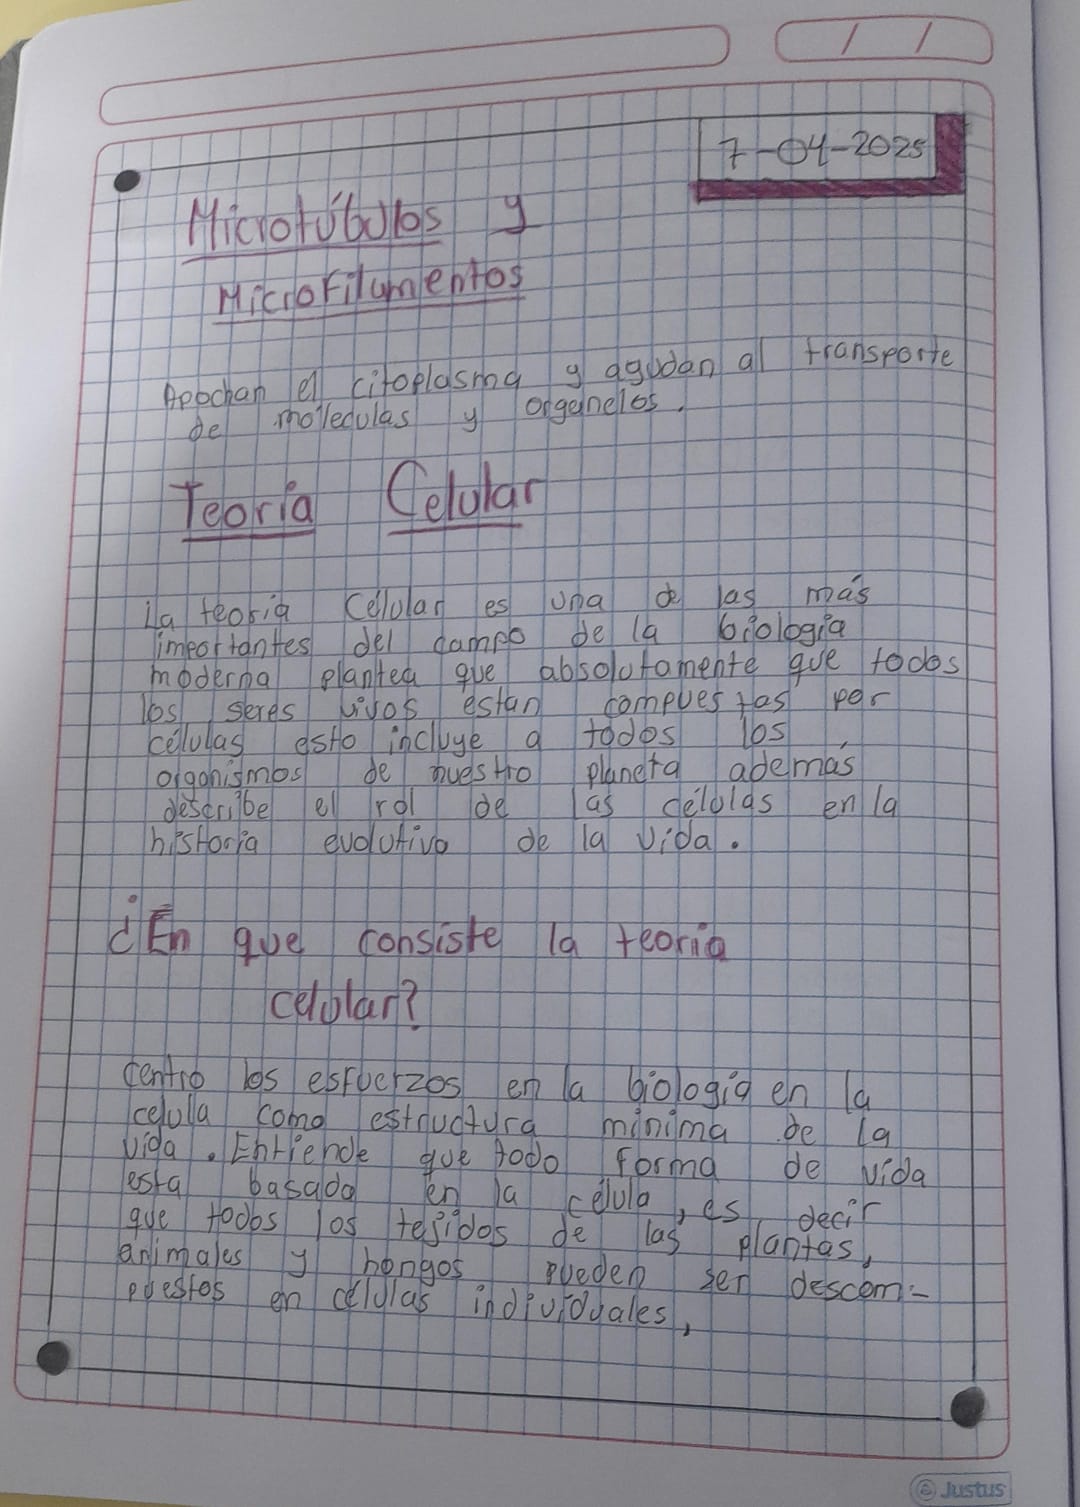 / /
7-04-2025
Microtúbulos y
Microfilamentos
Apochan el citoplasma y agudan al transporte
de moleculas y organelos.
Teoria Celular
La teoria Celular es una de las más
importantes del campo de la biologia
moderna plantea que absolutamente que todos
los seres vivos estan compuestas por
células esto incluye a todos los
organismos de nuestro planeta además
describe el rol de las células en la
historia evolutiva de la vida.
¿En que consiste la teoria
celular?
centro los esfuerzos en la biologia en la
celula como estructura minima de la
vida. Entiende que todo forma de vida
esta basada en la célula, es decir
que todos los tejidos de las plantas,
animales y hongos pueden ser descom-
puestos en células individuales,
Justus